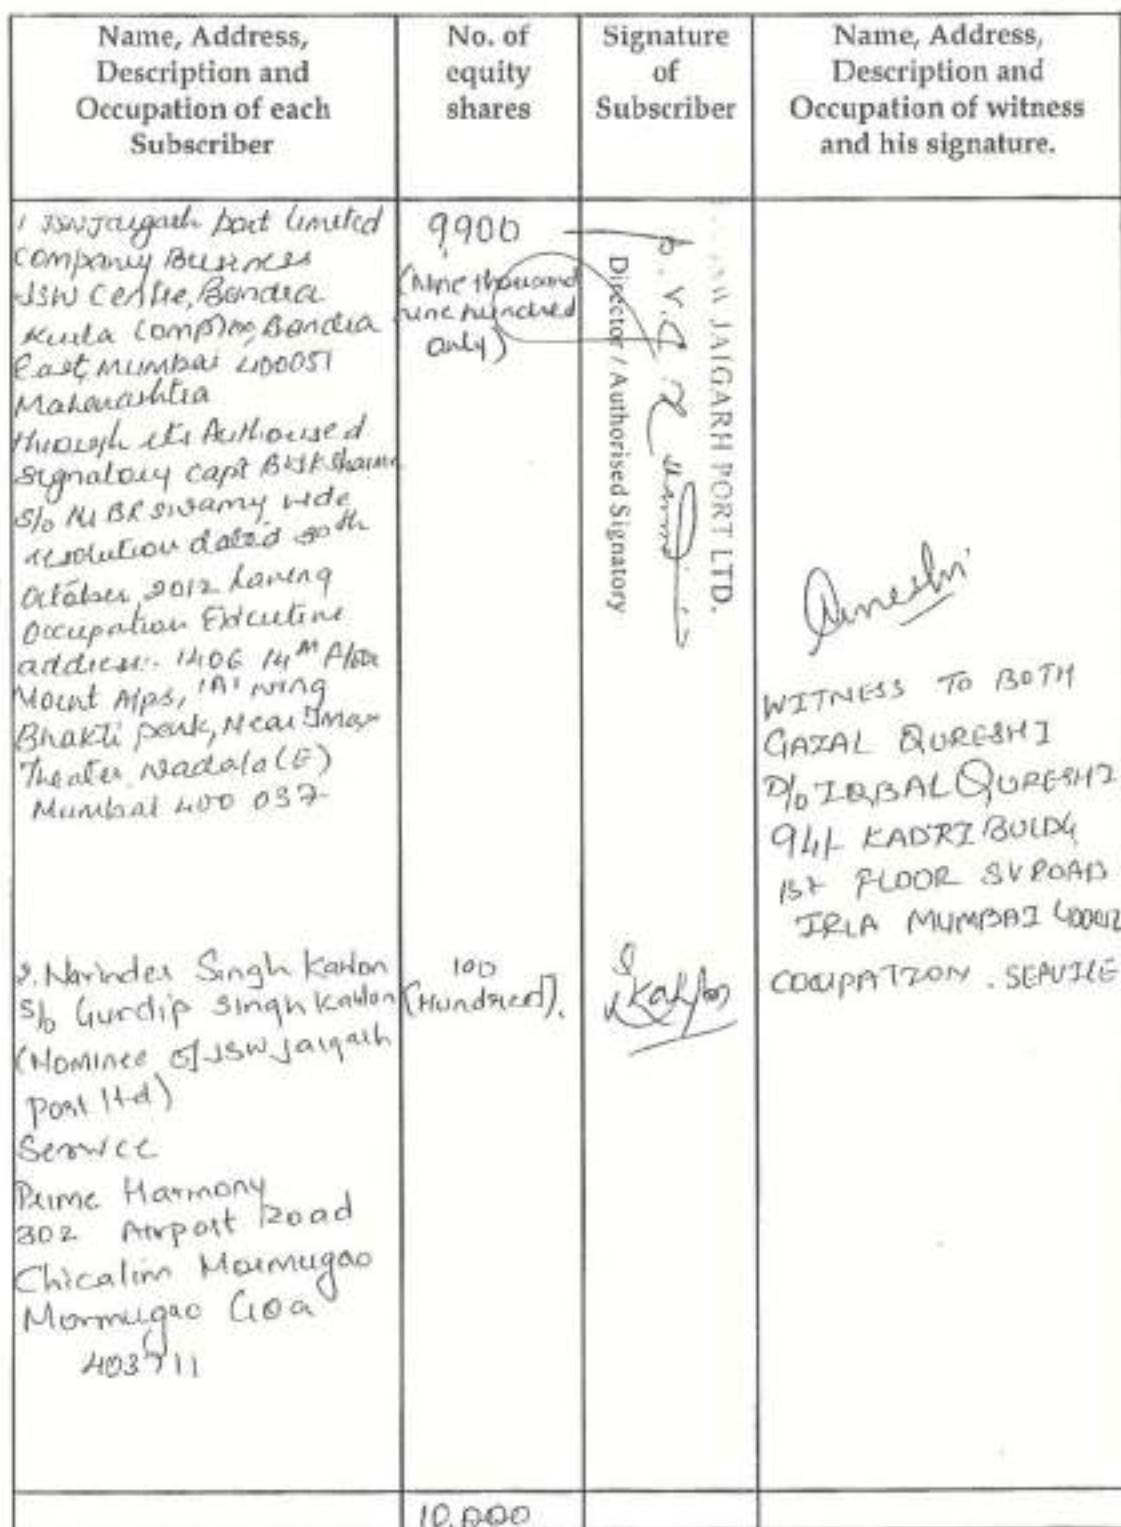 Name, Address,
Description and
Occupation of each
Subscriber
No. of
equity
shares
Signature
of
Subscriber
Name, Address,
Description and
Occupation of witness
and his signature.
1 JSW Jaigarh port Limited
Company Business
JSW Centre, Bandra
Kurla Complex, Bandra
East, Mumbai 400051
Maharashtra
through its Authorised
Signatory Capt BVJK Sharma
S/o Mr BR Swamy vide
resolution dated 30th
October 2012 having
Occupation Executive
address:- 1406 14th Floor
Mount Alps, 'A' wing
Bhakti park, Near Imax
Theater, Wadala (E)
Mumbai 400 037
9900
(Nine thousand
nine hundred
only)
JAIGARH PORT LTD.
Director / Authorised Signatory
WITNESS TO BOTH
GAZAL QURESHI
D/o IQBAL QURESHI
94/ KADRI BUILDG
1st FLOOR SV ROAD
IRLA MUMBAI
OCCUPATION. SERVICE
2. Narinder Singh Kahlon
S/o Gurdip Singh Kahlon
(Nominee of JSW Jaigarh
Port ltd)
Service
Prime Harmony
302 Airport Road
Chicalim Mormugao
Mormugao Goa
403711
100
(Hundred).
Kahlon
10,000